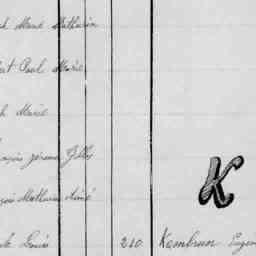 Marie Mathurin
Paul Marie
Marie
Jérome Gilles
K
Mathurin Aimé
Louis 210 Kembrun Eugèn